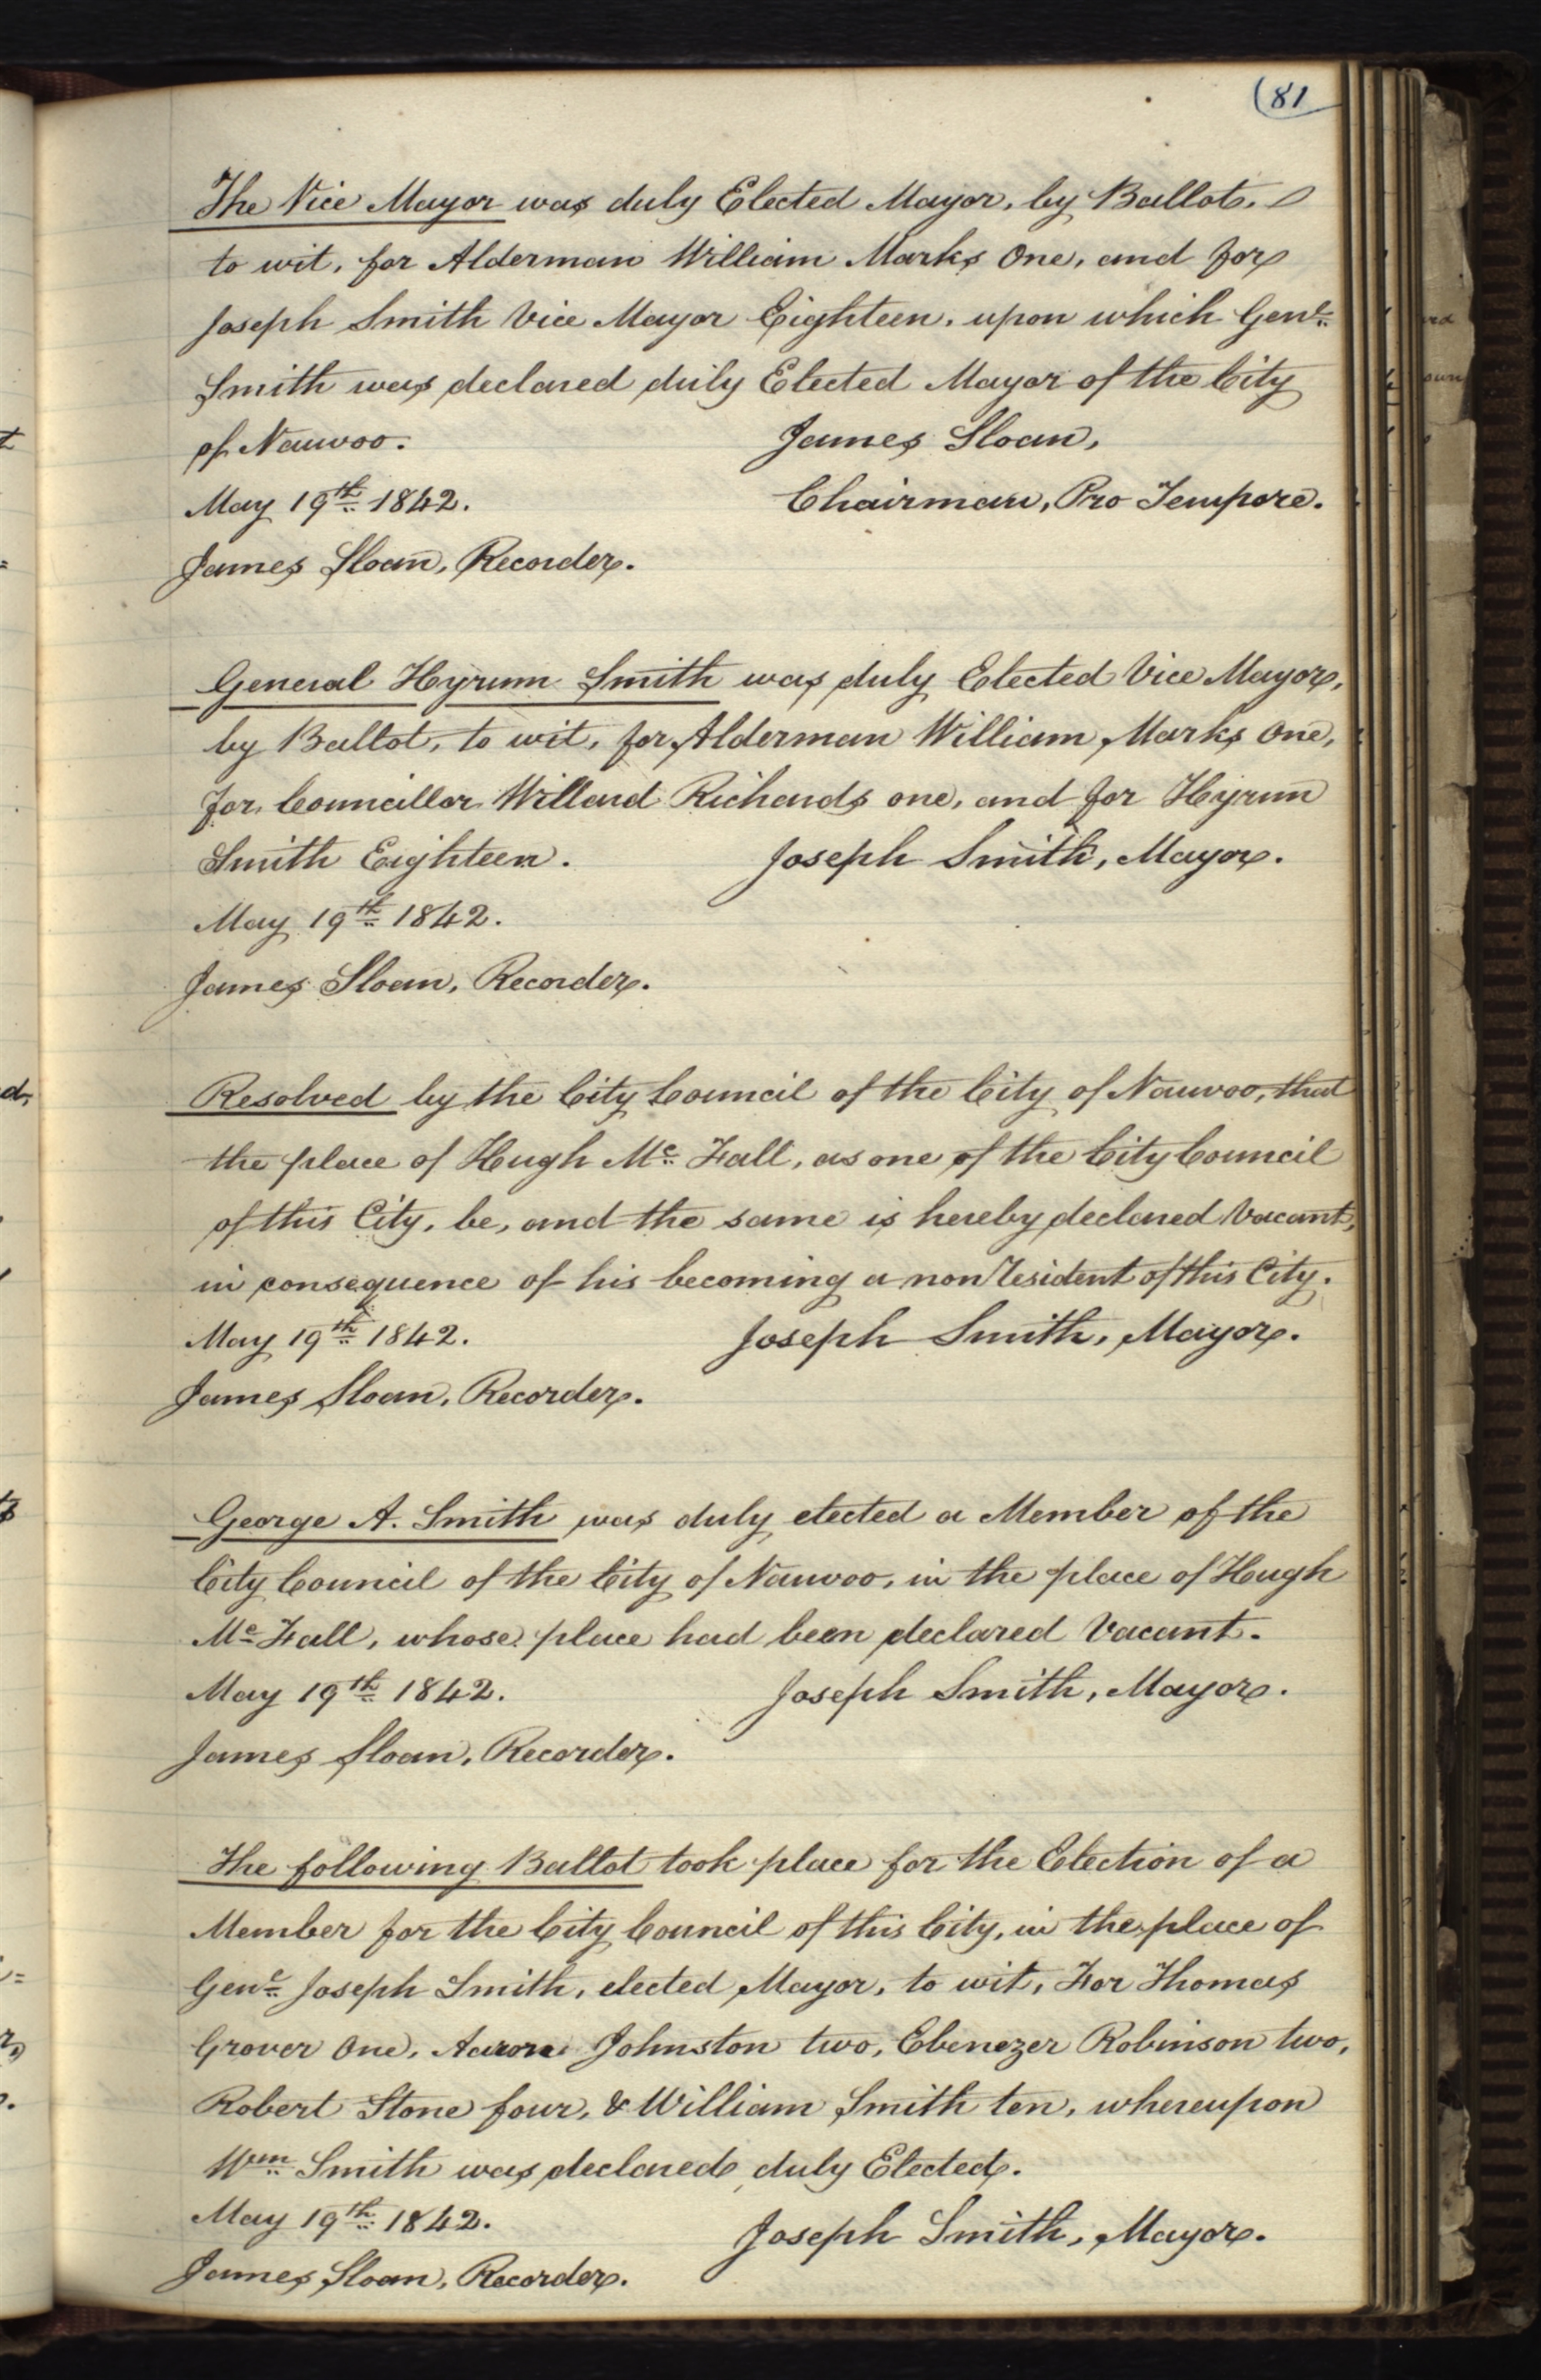 (81
The Vice Mayor was duly Elected Mayor, by Ballot,
to wit, for Alderman William Marks One, and for
Joseph Smith Vice Mayor Eighteen, upon which Genl.
Smith was declared duly Elected Mayor of the City
of Nauvoo. James Sloan,
May 19th. 1842. Chairman, Pro Tempore.
James Sloan, Recorder.
General Hyrum Smith was duly Elected Vice Mayor,
by Ballot, to wit, for Alderman William Marks One,
for Councillor Willard Richards one, and for Hyrum
Smith Eighteen. Joseph Smith, Mayor.
May 19th. 1842.
James Sloan, Recorder.
Resolved by the City Council of the City of Nauvoo, that
the place of Hugh Mc. Fall, as one of the City Council
of this City, be, and the same is hereby declared Vacant,
in consequence of his becoming a non Resident of this City.
May 19th. 1842. Joseph Smith, Mayor.
James Sloan, Recorder.
George A. Smith was duly elected a Member of the
City Council of the City of Nauvoo, in the place of Hugh
Mc. Fall, whose place had been declared Vacant.
May 19th. 1842. Joseph Smith, Mayor.
James Sloan, Recorder.
The following Ballot took place for the Election of a
Member for the City Council of this City, in the place of
Genl. Joseph Smith, elected Mayor, to wit, For Thomas
Grover One, Aaron Johnston two, Ebenezer Robinson two,
Robert Stone four, & William Smith ten, whereupon
Wm. Smith was declared duly Elected.
May 19th. 1842. Joseph Smith, Mayor.
James Sloan, Recorder.